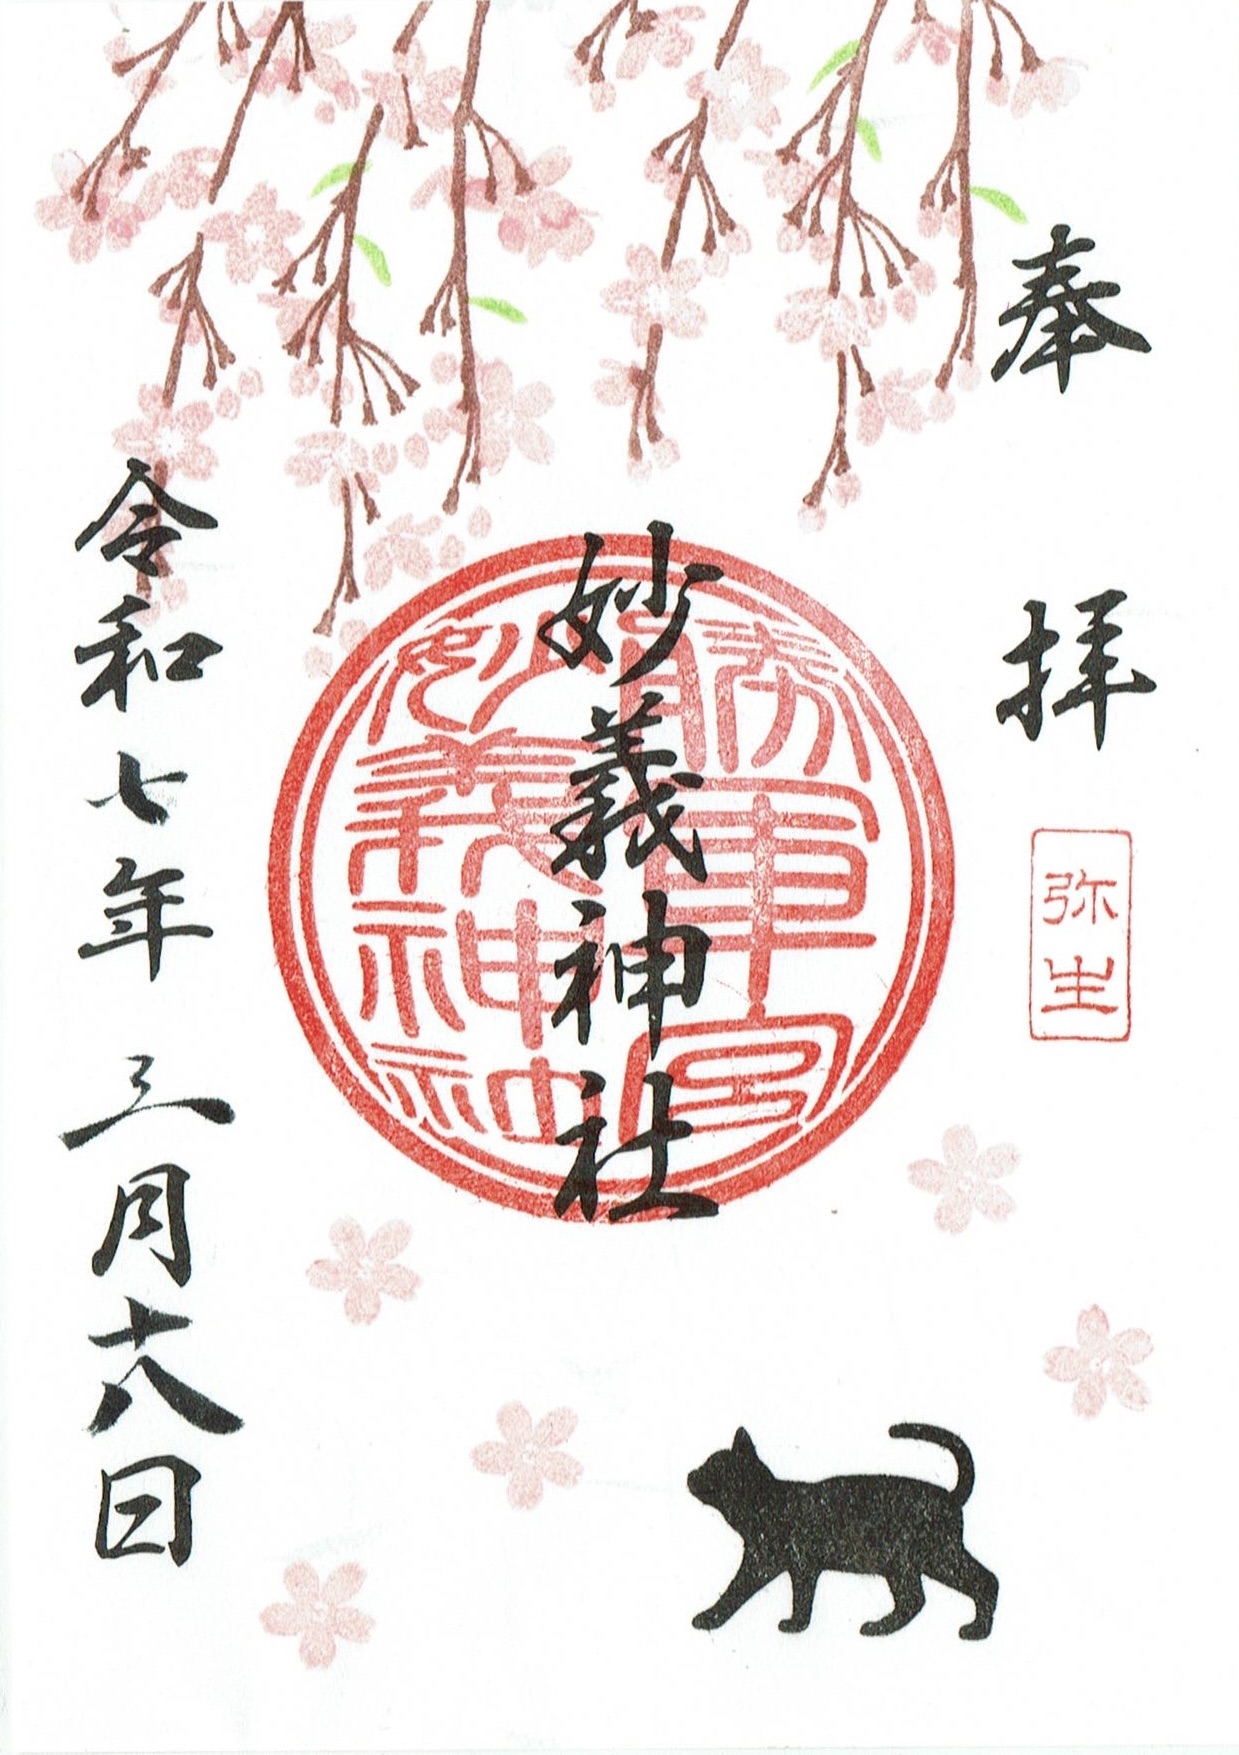 奉拝
弥生
妙義神社
勝軍宮
妙義神社
令和七年三月十八日